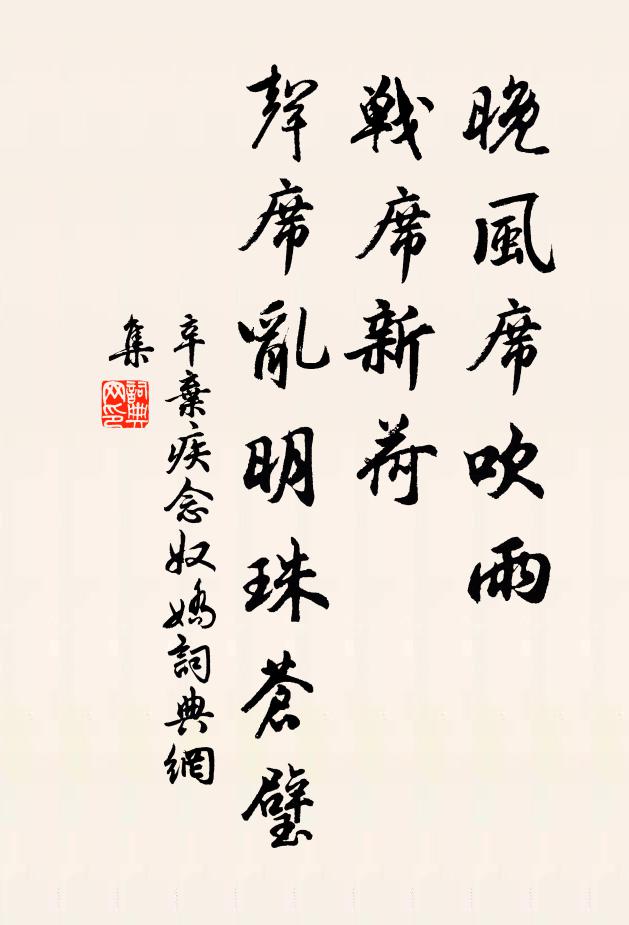 晚風席吹雨
戰席新荷
聲席亂明珠蒼璧
辛棄疾念奴嬌詞典網
集
詞典網印